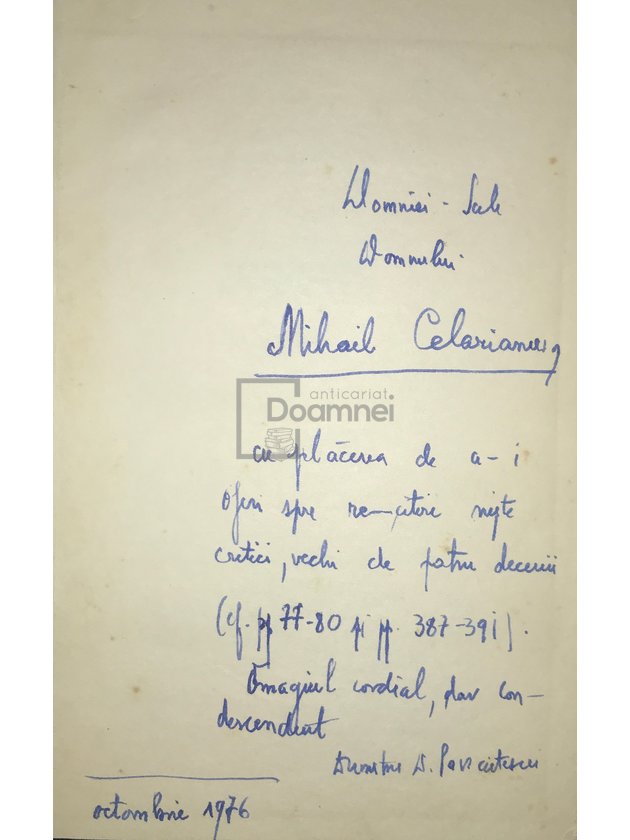 Domniei-Sale
Domnului
Mihail Celarianu,
anticariat
Doamnei
cu plăcerea de a-i
oferi spre re-citire niște
critici, vechi de patru decenii
(cf. pp 77-80 și pp. 387-391).
Omagiul cordial, dar con-
descendent
Dumitru D.
octombrie 1976